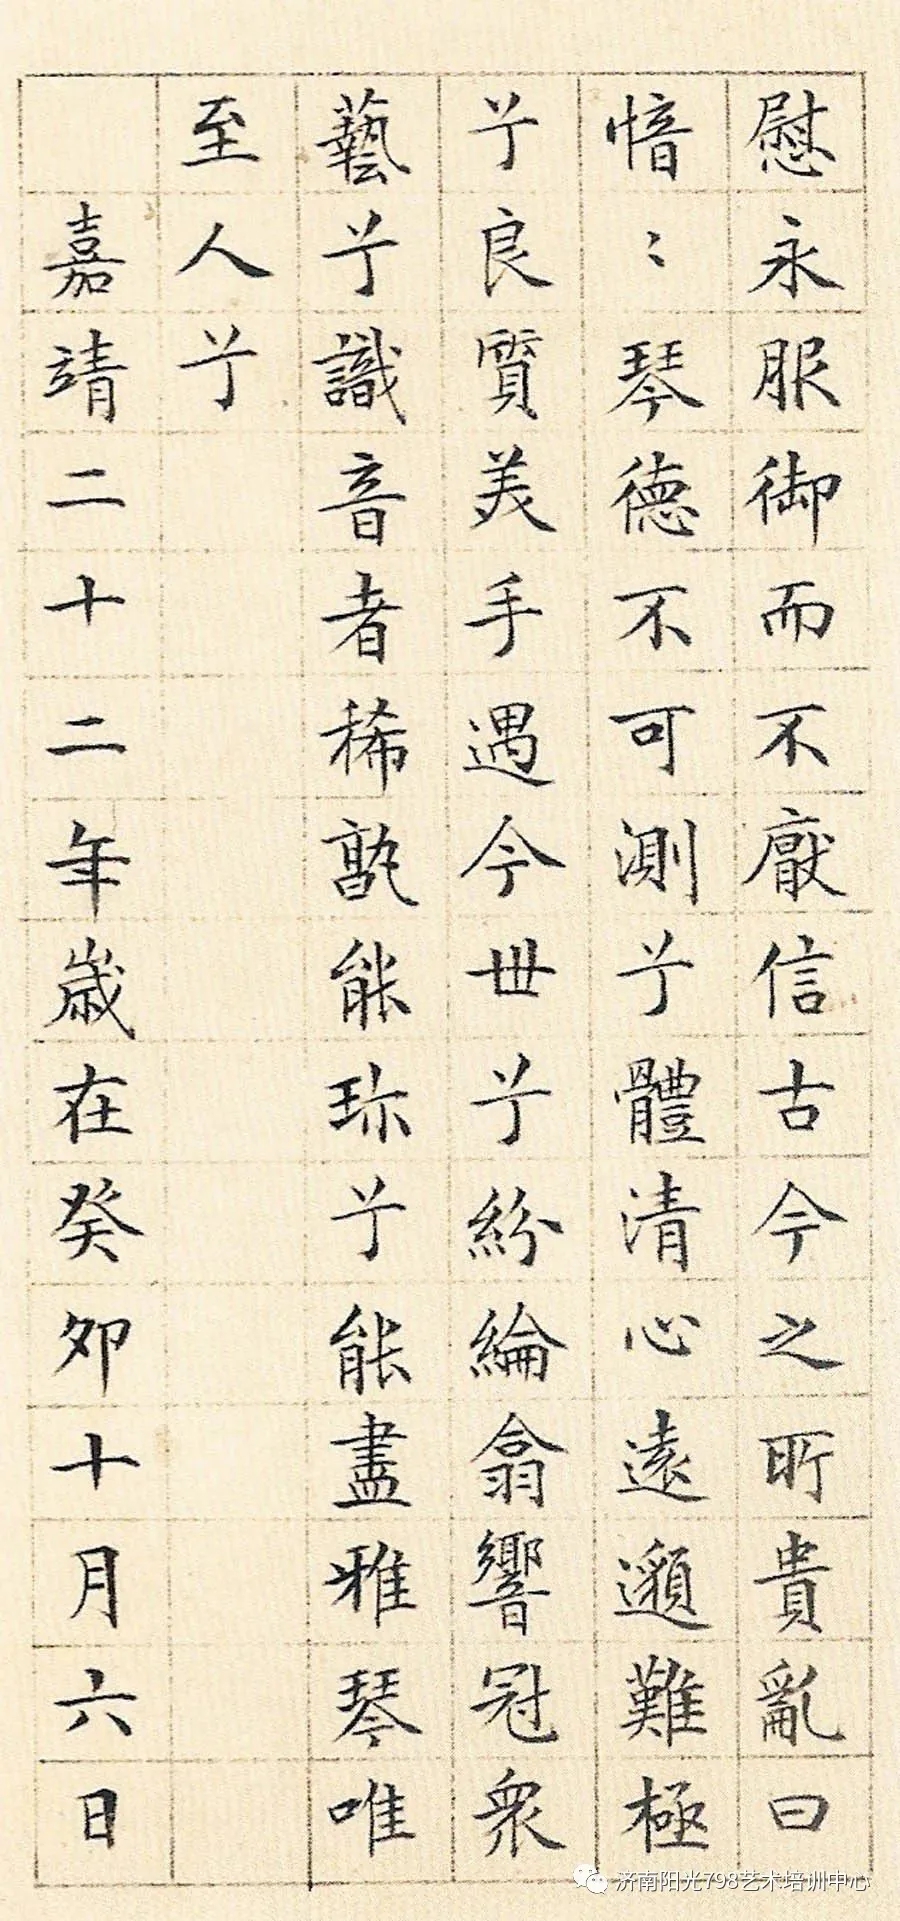 慰永服御而不厭信古今之所貴亂曰
愔〻琴德不可測兮體清心遠邈難極
兮良質美手遇今世兮紛綸翕響冠眾
藝兮識音者稀孰能珎兮能盡雅琴唯
至人兮
嘉靖二十二年歲在癸卯十月六日
济南阳光798艺术培训中心